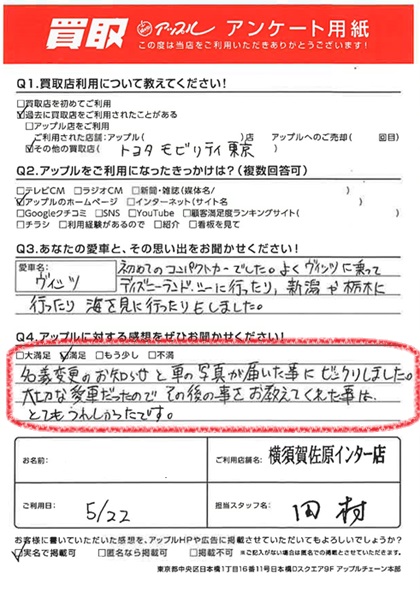 買取 アップル アンケート用紙
この度は当店をご利用いただきありがとうございます!
Q1.買取店利用について教えてください!
□買取店を初めてご利用
☑過去に買取店をご利用されたことがある
□アップル店をご利用
ご利用された店舗:アップル( )店 アップルへのご売却( 回目)
☑その他の買取店( トヨタモビリティ東京 )
Q2.アップルをご利用になったきっかけは?(複数回答可)
□テレビCM □ラジオCM □新聞・雑誌(媒体名/ )
☑アップルのホームページ □インターネット(サイト名 )
□Googleクチコミ □SNS □YouTube □顧客満足度ランキングサイト( )
□チラシ □利用経験があるので □紹介 □看板を見て
Q3.あなたの愛車と、その思い出をお聞かせください!
愛車名: ヴィッツ
初めてのコンパクトカーでした。よくヴィッツに乗って
ディズニーランドッーに行ったり、新潟や栃木に
行ったり海を見に行ったりもしました。
Q4.アップルに対する感想をぜひお聞かせください!
□大満足 ☑満足 □もう少し □不満
名義変更のお知らせと車の写真が届いた事にビックリしました。
大切な愛車だったのでその後の事をお教えてくれた事は、
とてもうれしかったです。
お名前: ご利用店舗名: 横須賀佐原インター店
ご利用日: 5/22 担当スタッフ名: 田村
お客様に書いていただいた感想を、アップルHPや広告に掲載させていただいてもよろしいでしょうか?
☑実名で掲載可 □匿名なら掲載可 □掲載不可 ※ご記入がない場合は匿名での掲載とさせていただきます。
東京都中央区日本橋1丁目16番11号日本橋Dスクエア9F アップルチェーン本部